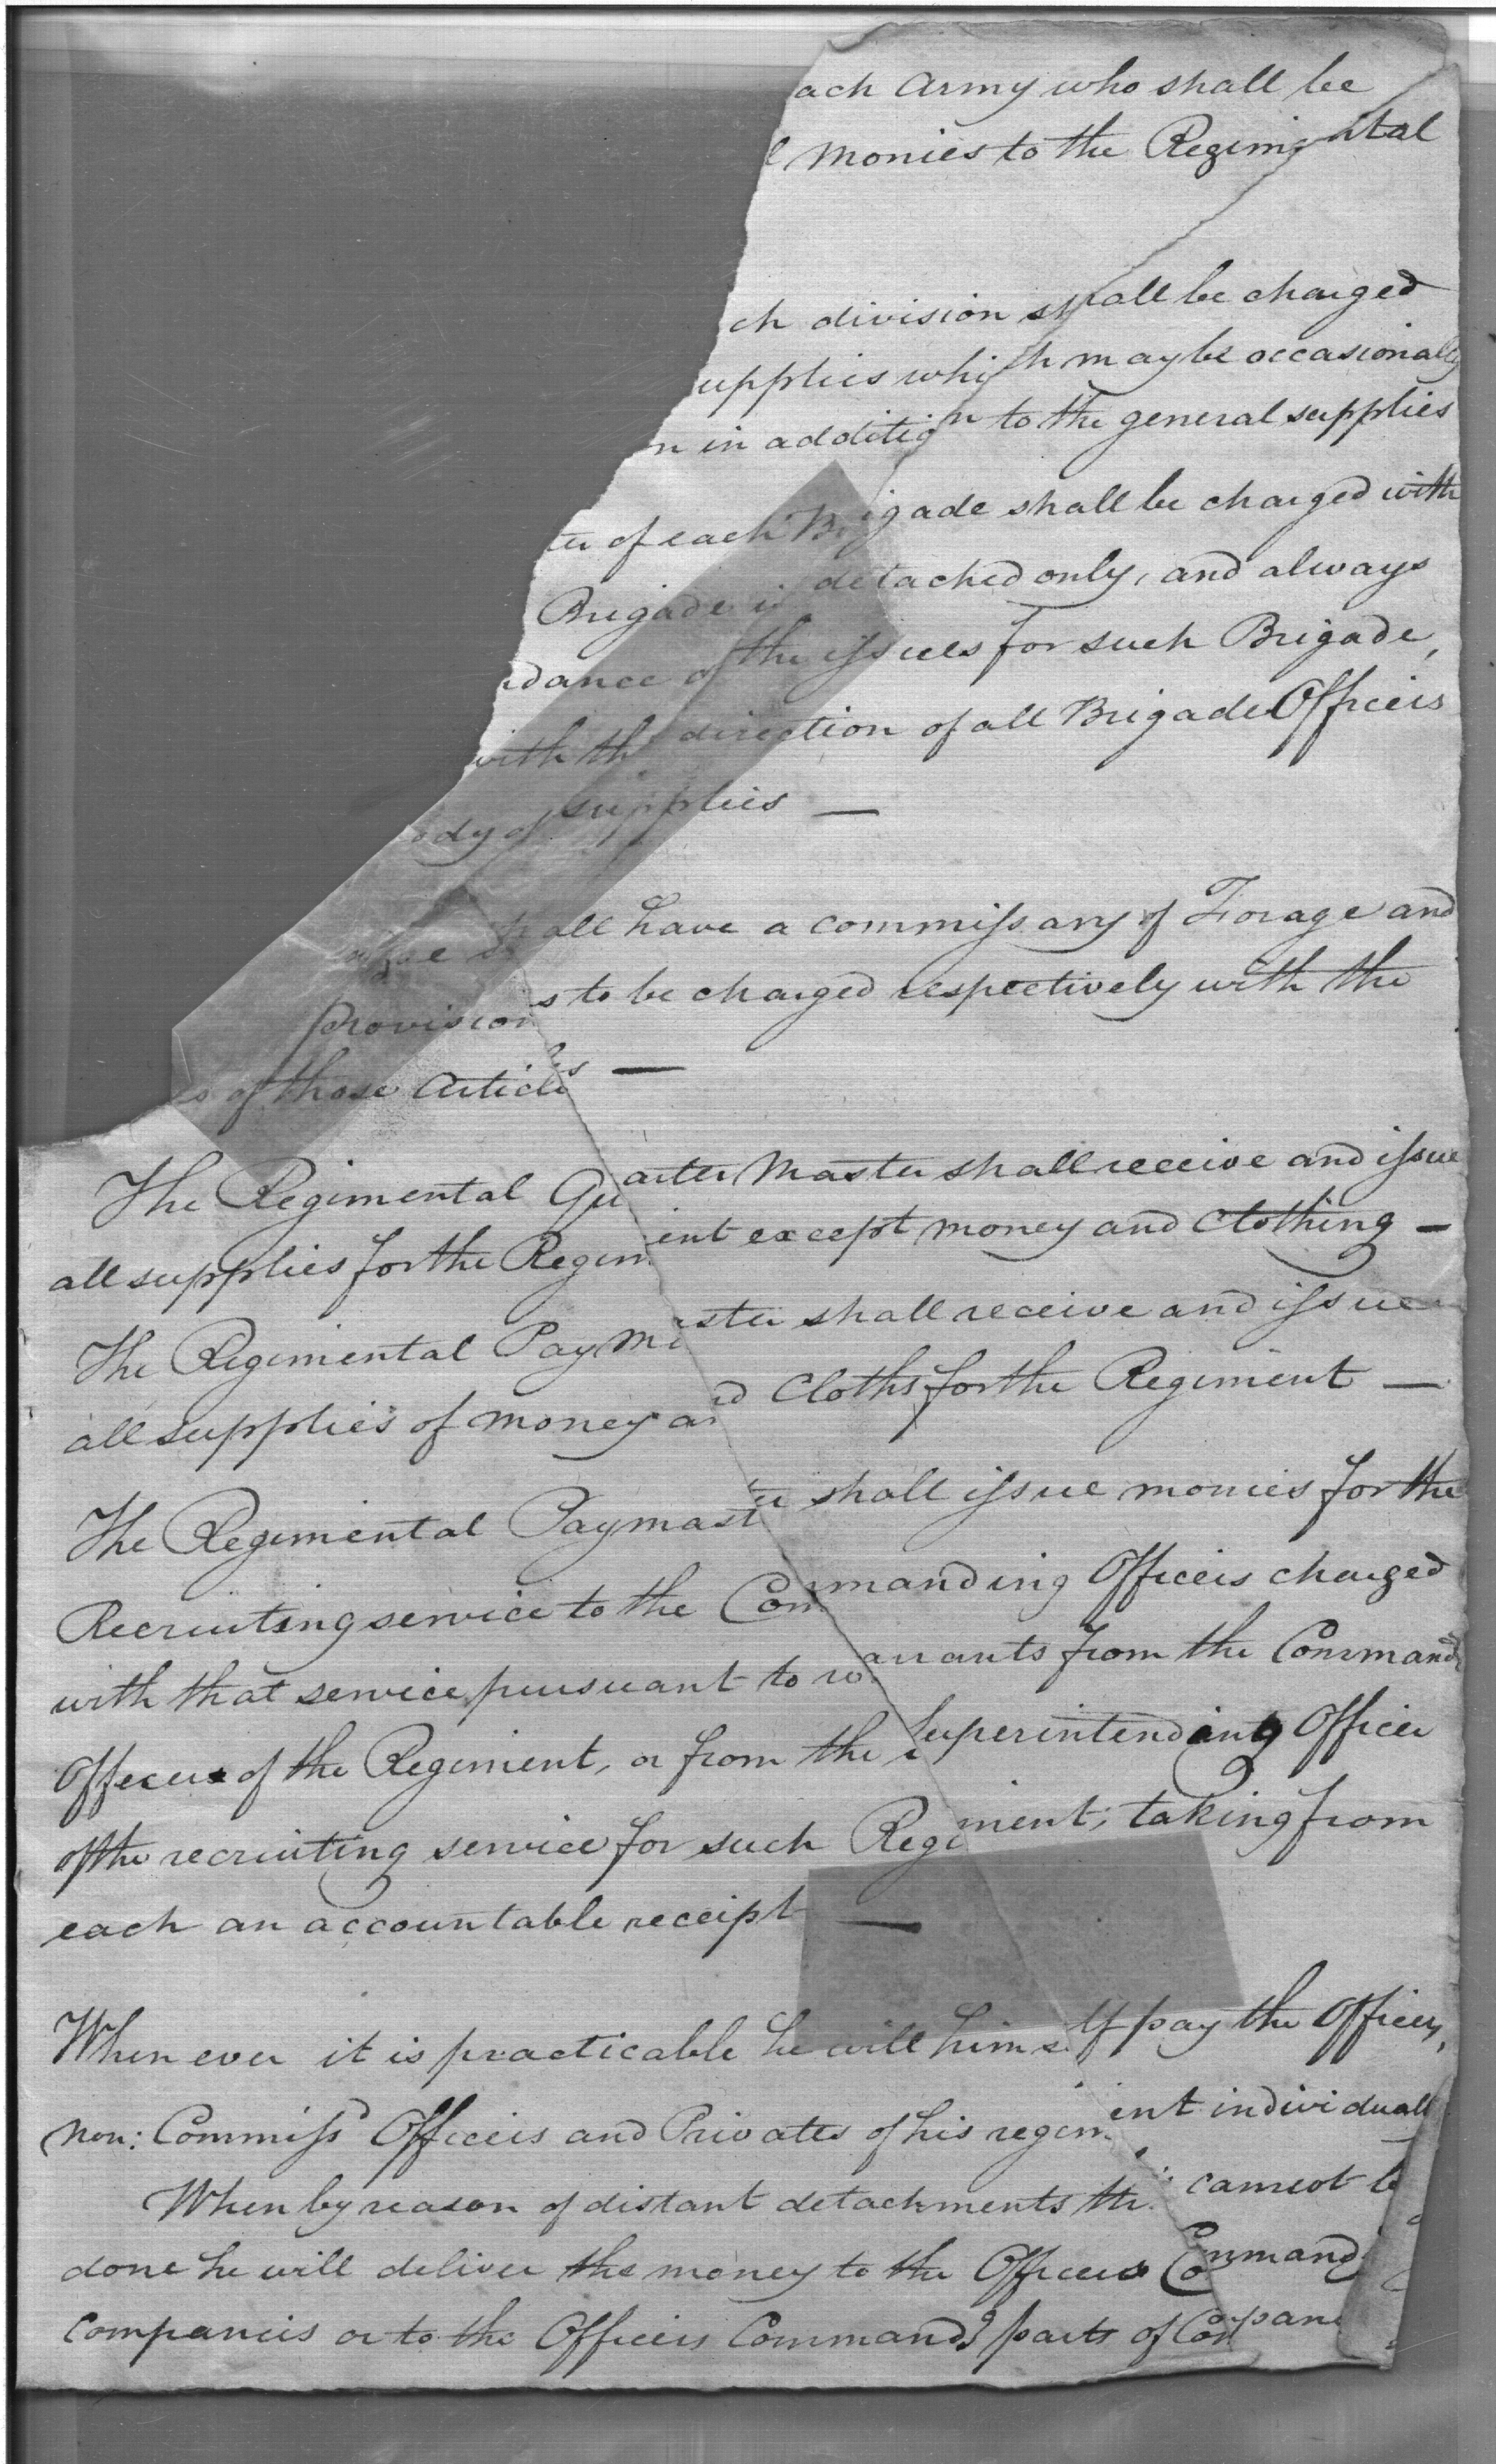 ach Army who shall be
l monies to the Regimental
ch division shall be charged
upplies which may be occasionally
n in addition to the general supplies
ter of each Brigade shall be charged with
Brigade is detached only, and always
ndance of the issues for such Brigade,
with the direction of all Brigade Officers
ody of supplies —
shall have a commissary of Forage and
Provisions to be charged respectively with the
es of those Articles —
The Regimental Quarter Master shall receive and issue
all supplies for the Regiment except money and Clothing —
The Regimental Paymaster shall receive and issue
all supplies of money and Cloths for the Regiment —
The Regimental Paymaster shall issue monies for the
Recruiting service to the Commanding Officers charged
with that service pursuant to warrants from the Command
Officer of the Regiment, or from the Superintending Officer
of the recruiting service for such Regiment; taking from
each an accountable receipt —
When ever it is practicable he will himself pay the Officers,
Non: Commissd Officers and Privates of his regiment individuall
When by reason of distant detachments this cannot b
done he will deliver the money to the Officers Command
Companies or to the Officers Commandg parts of Compani